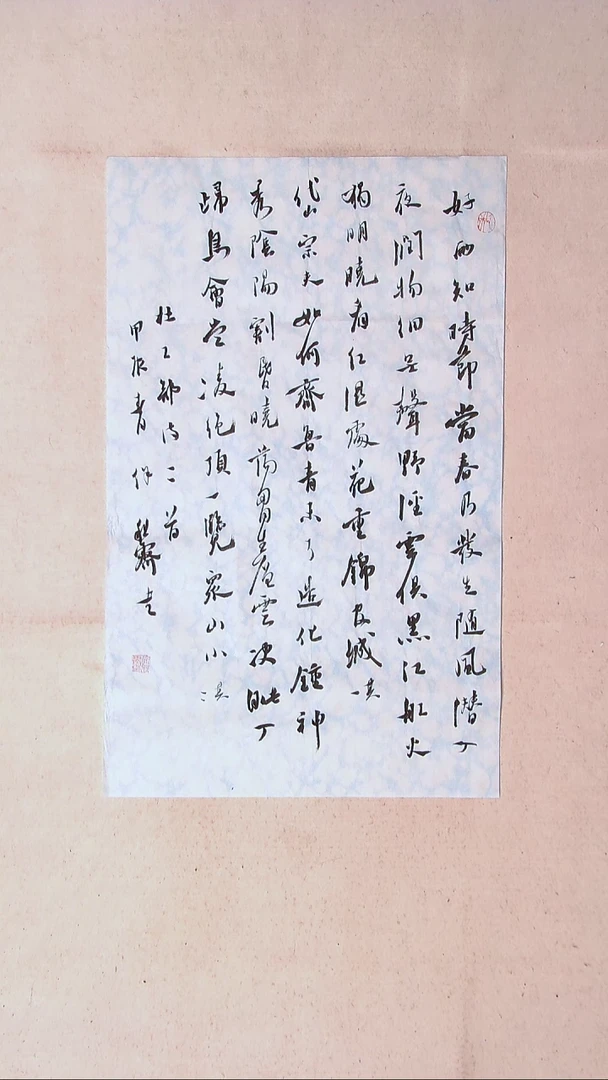 好雨知時節當春乃發生随風潛入
夜潤物細無聲野徑雲俱黑江船火
獨明曉看紅濕處花重錦官城 其一
岱宗夫如何齊魯青未了造化鍾神
秀陰陽割昏曉蕩胸生層雲決眥入
歸鳥會當凌絕頂一覽衆山小 其二
杜工部诗二首
甲辰 齋